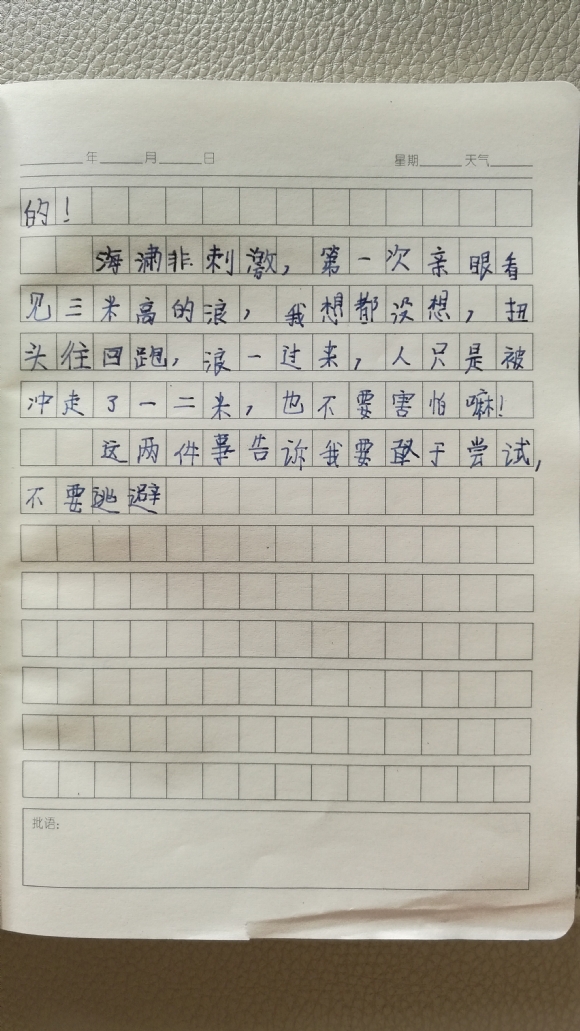 年 月 日 星期 天气
的！
海潚非刺激，第一次亲眼看
见三米高的浪，我想都没想，扭
头往回跑，浪一过来，人只是被
冲走了一二米，也不要害怕嘛！
这两件事告诉我要敢于尝试，
不要逃避
批语：